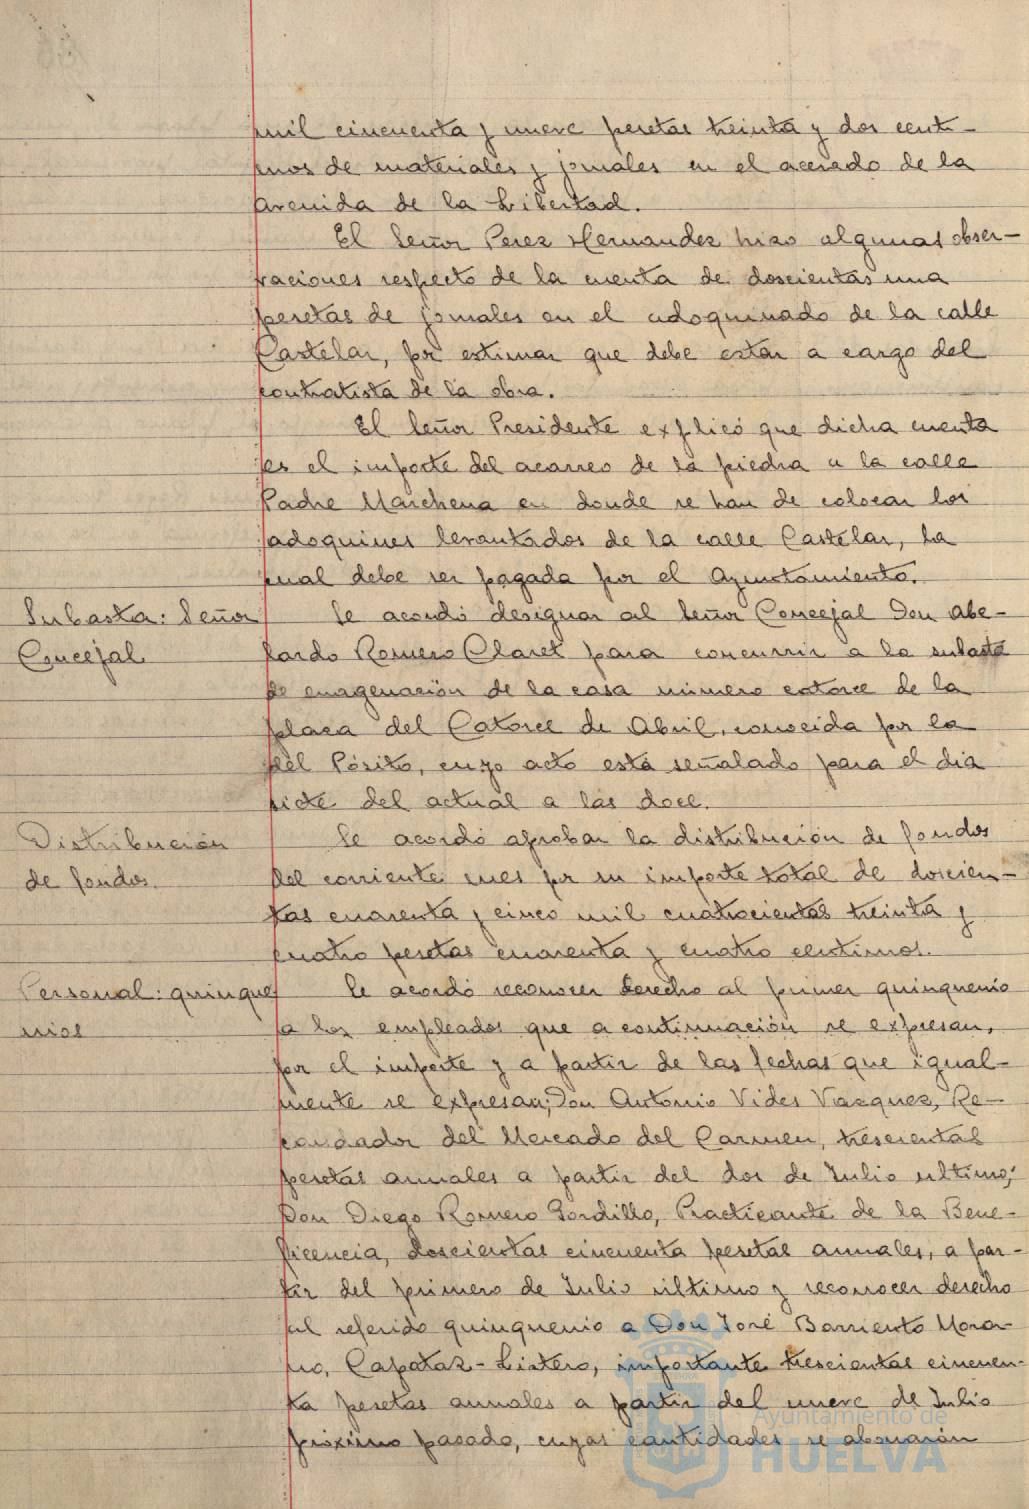 mil cincuenta y nueve pesetas treinta y dos centi-
mos de materiales y jornales en el acerado de la
Avenida de la Libertad.
El Señor Perez Hernandez hizo algunas obser-
vaciones respecto de la cuenta de doscientas una
pesetas de jornales en el adoquinado de la calle
Castelar, por estimar que debe estar a cargo del
contratista de la obra.
El Señor Presidente explicó que dicha cuenta
es el importe del acarreo de la piedra a la calle
Padre Marchena en donde se han de colocar los
adoquines levantados de la calle Castelar, la
cual debe ser pagada por el Ayuntamiento.
Subasta: Señor
Concejal
Se acordó designar al Señor Concejal Don Abe-
lardo Romero Claret para concurrir a la subasta
de enagenación de la casa número catorce de la
plaza del Catorce de Abril, conocida por la
del Pósito, cuyo acto está señalado para el dia
siete del actual a las doce.
Distribución
de fondos.
Se acordó aprobar la distribución de fondos
del corriente mes por su importe total de doscien-
tas cuarenta y cinco mil cuatrocientas treinta y
cuatro pesetas cuarenta y cuatro centimos.
Personal: quinque
nios
Se acordó reconocer derecho al primer quinquenio
a los empleados que a continuación se expresan,
por el importe y a partir de las fechas que igual-
mente se expresan; Don Antonio Vides Vazquez, Re-
caudador del Mercado del Carmen, trescientas
pesetas anuales a partir del dos de Julio ultimo;
Don Diego Romero Gordillo, Practicante de la Bene-
ficencia, doscientas cincuenta pesetas anuales, a par-
tir del primero de Julio ultimo y reconocer derecho
al referido quinquenio a Don José Barriento Mora-
no, Capataz-Listero, importante trescientas cincuen-
ta pesetas anuales a partir del nueve de Julio
próximo pasado, cuyas cantidades se abonarán
Ayuntamiento de
HUELVA